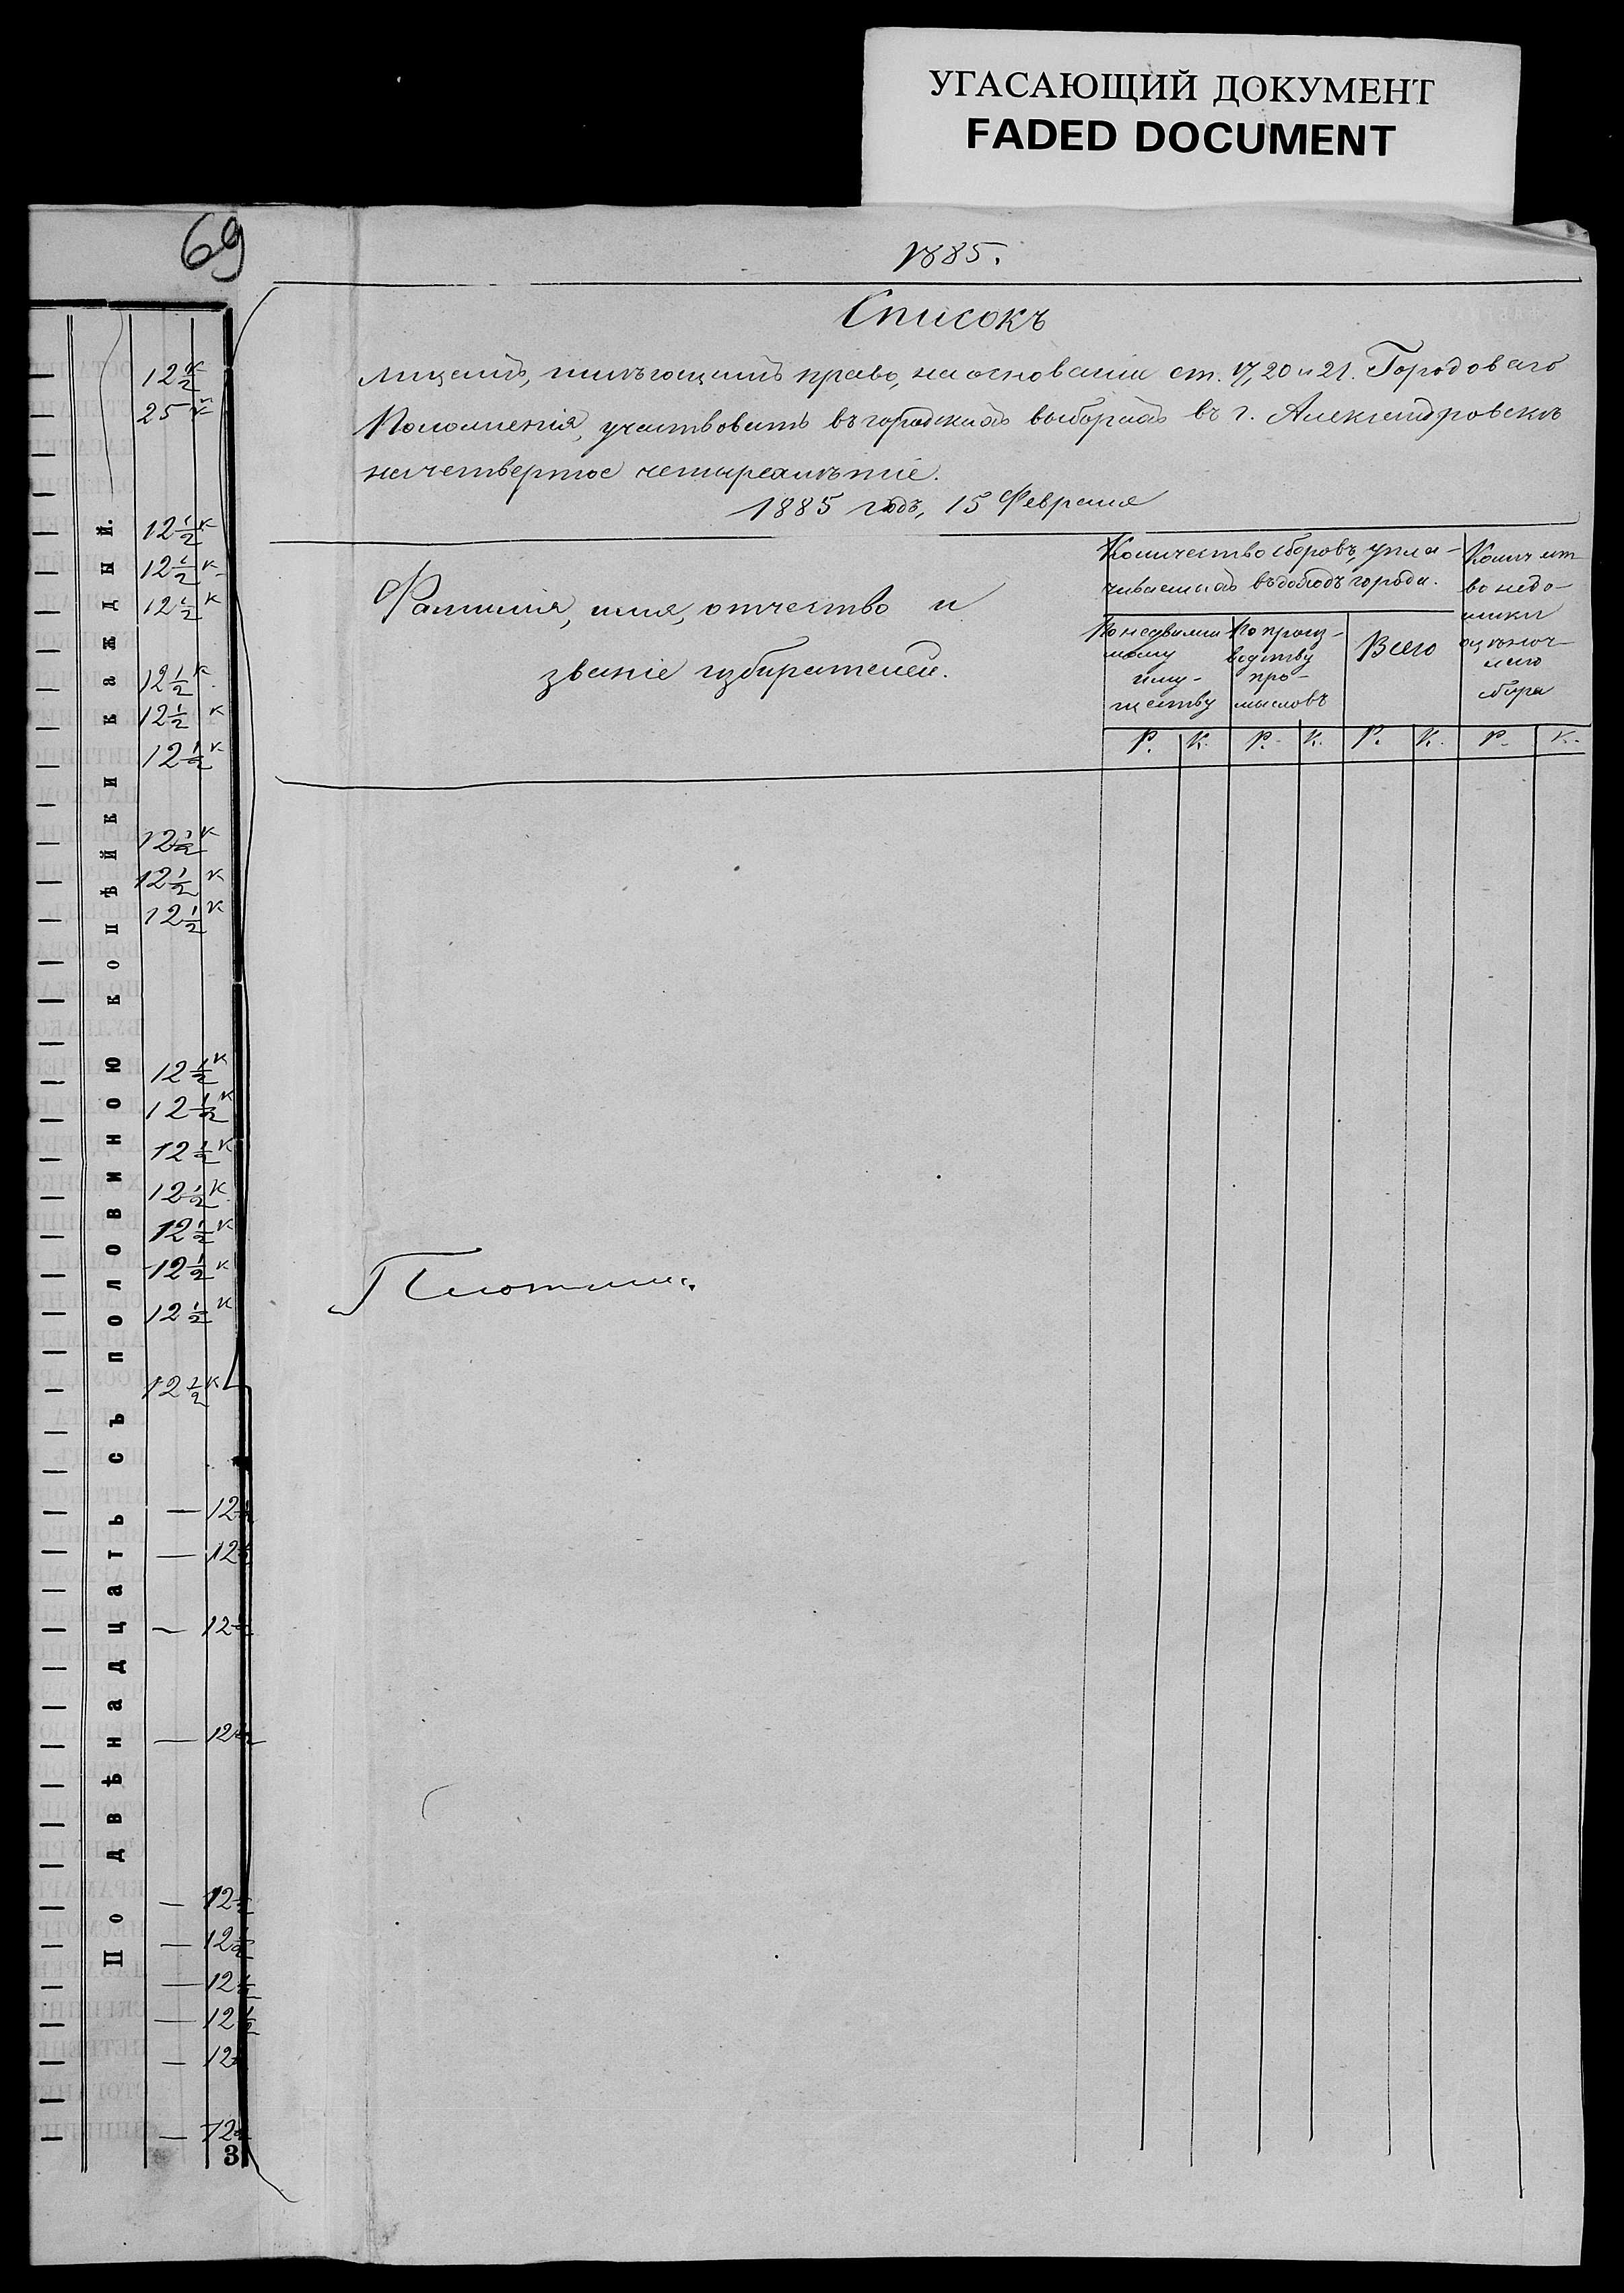 УГАСАЮЩИЙ ДОКУМЕНТ
FADED DOCUMENT
69
1885.
Списокъ
лицамъ, имѣющимъ право, на основаніи ст. 17, 20 и 21. Городоваго
Положенія, участвовать въ городскихъ выборахъ въ г. Александровскѣ
на четвертое четырехлѣтіе.
1885 годъ, 15 Февраля
Фамилія, имя, отчество и
званіе избирателей.
Количество сборовъ, упла-
чиваемыхъ въ доходъ города.
По недвижи-
мому
иму-
ществу
По произ-
водству
про-
мысловъ
Всего
Количест
во недо-
имки
оцѣноч-
наго
сбора
Р. К. Р. К. Р. К. Р. К.
По двѣнадцать съ половиною копѣйки каждый.
12 1/2 к
25 к
12 1/2 к
12 1/2 к
12 1/2 к
12 1/2 к
12 1/2 к
12 1/2 к
12 1/2 к
12 1/2 к
12 1/2 к
12 1/2 к
12 1/2 к
12 1/2 к
12 1/2 к
12 1/2 к
12 1/2 к
12 1/2 к
12 1/2 к
— 12 1/2
— 12 1/2
— 12 1/2
— 12 1/2
— 12 1/2
— 12 1/2
— 12 1/2
— 12 1/2
— 12
— 12
3